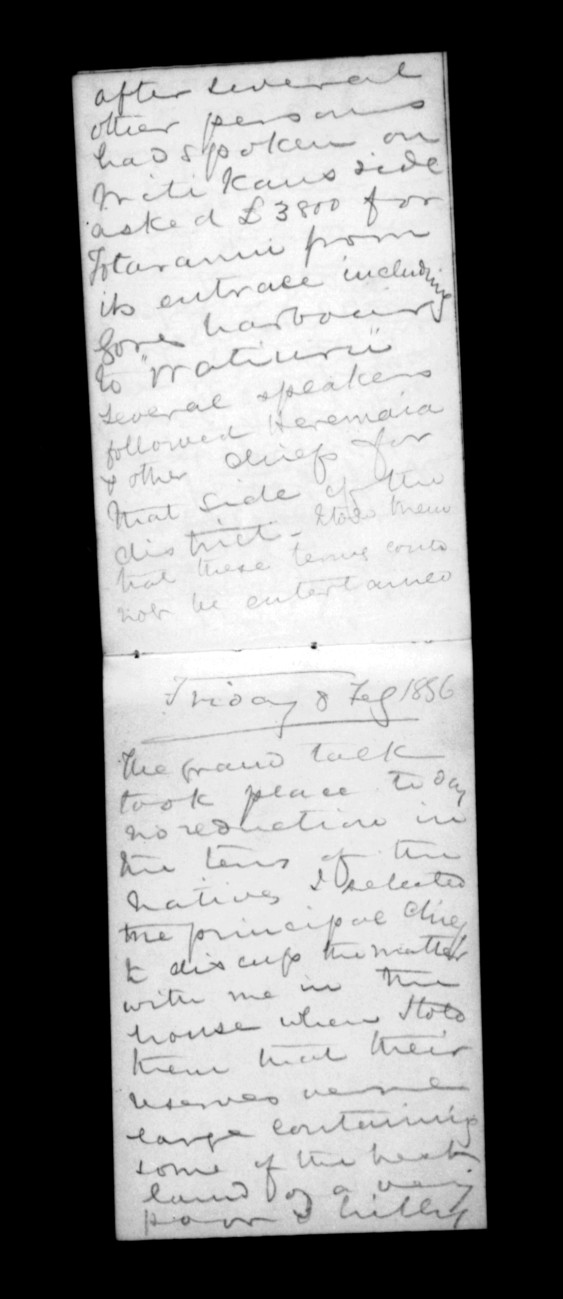 after several
other persons
had spoken on
Writi Kaus side
asked £3800 for
Totaranui from
its entrace including
Gores harbour
to "Watiuru"
several speakers
followed Heremaia
& other chiefs for
that side of the
district. I told them
that these terms could
not be entertained
Friday 8 Feb 1856
The grand talk
took place today
no reduction in
the terms of the
natives I selected
the principal chiefs
to discuss the matter
with me in the
house when I told
them that their
reserves were
large containing
some of the best
land of a very
poor & hilly